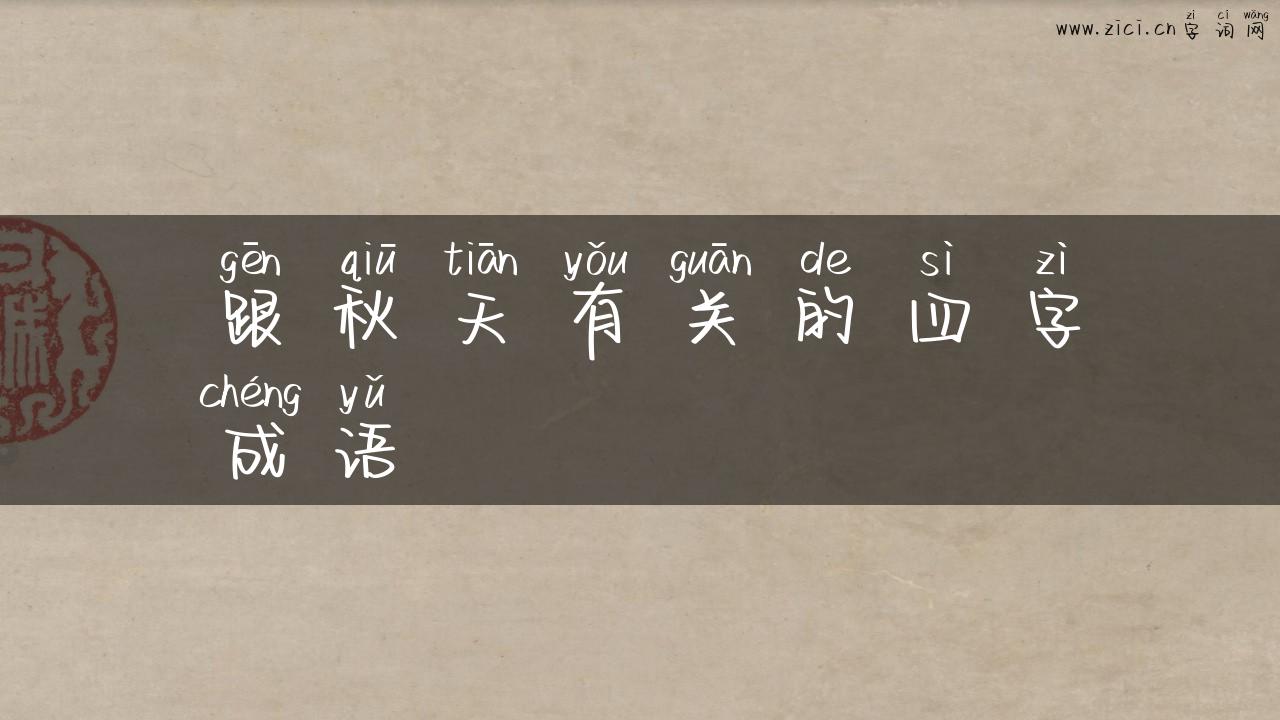 zì cí wǎng
www.zici.cn 字词网
gēn qiū tiān yǒu guān de sì zì
跟秋天有关的四字
chéng yǔ
成语